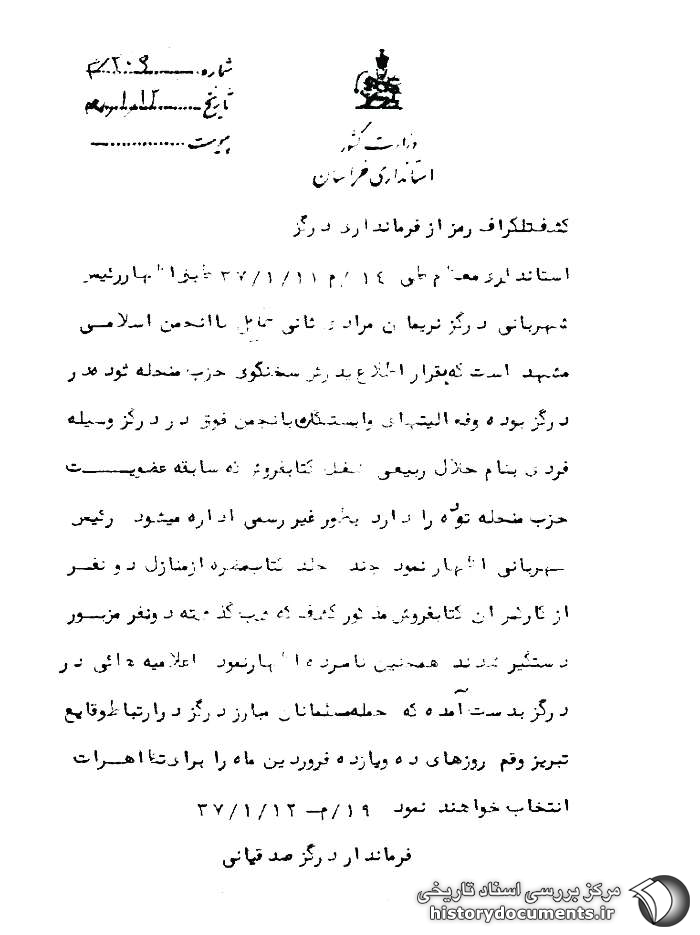 شماره
تاریخ
پیوست
وزارت کشور
استانداری خراسان
کشف تلگراف رمز از فرمانداری درگز
استانداری معظم طی ۱۴/م ۳۷/۱/۱۱ طبق اظهار رئیس
شهربانی درگز نریمان مرادی ثانی متمایل باانجمن اسلامی
مشهد است که بقرار اطلاع پدرش سخنگوی حزب منحله توده در
درگز بوده وفعالیتهای وابستگان بانجمن فوق در درگز وسیله
فردی بنام جلال ربیعی شغل کتابفروش که سابقه عضویت
حزب منحله توده را دارد بطور غیر رسمی اداره میشود رئیس
شهربانی اظهار نمود چند جلد کتاب مضره ازمنازل دو نفر
از کارگران کتابفروش مذکور کشف که شب گذشته دونفر مزبور
دستگیر شدند همچنین نامبرده اظهارنمود اعلامیه هائی در
درگز بدست آمده که حمله مسلمانان مبارز درگز درارتباط وقایع
تبریز وقم روزهای ده ویازده فروردین ماه را برای تظاهرات
انتخاب خواهند نمود ۱۹/م-۳۷/۱/۱۲
فرماندار درگز صدقیانی
مرکز بررسی اسناد تاریخی
historydocuments.ir